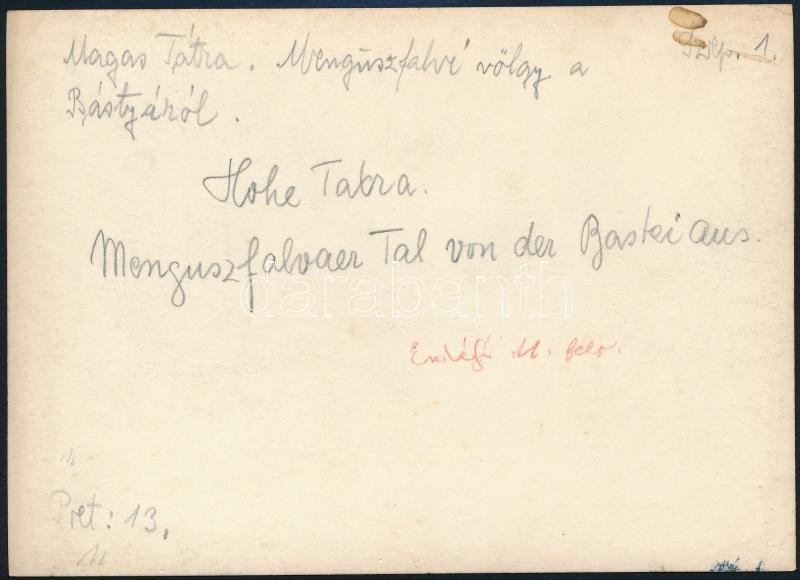 Magas Tátra. Menguszfalvi völgy a
Szep. 1.
Bástyáról.
Hohe Tatra.
Menguszfalvaer Tal von der Bastei aus.
darabanth
Erdéfi M. felv.
Pret: 13,